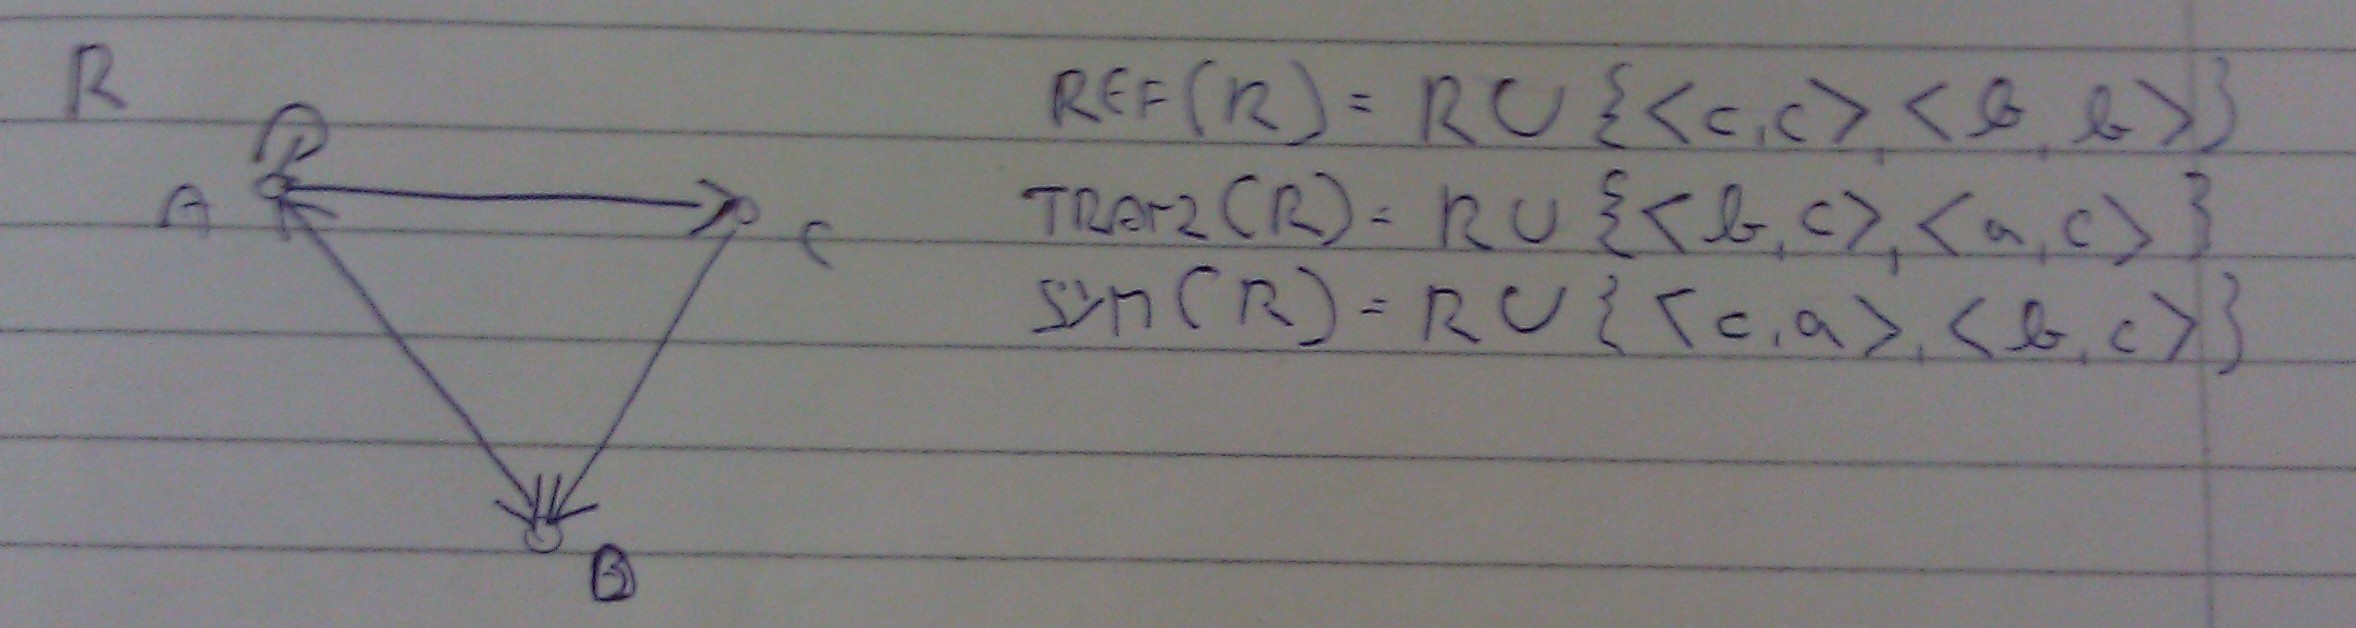 R
A
C
B
REF(R) = R ∪ {<c,c>,<b,b>}
TRANZ(R) = R ∪ {<b,c>,<a,c>}
SYM(R) = R ∪ {<c,a>,<b,c>}